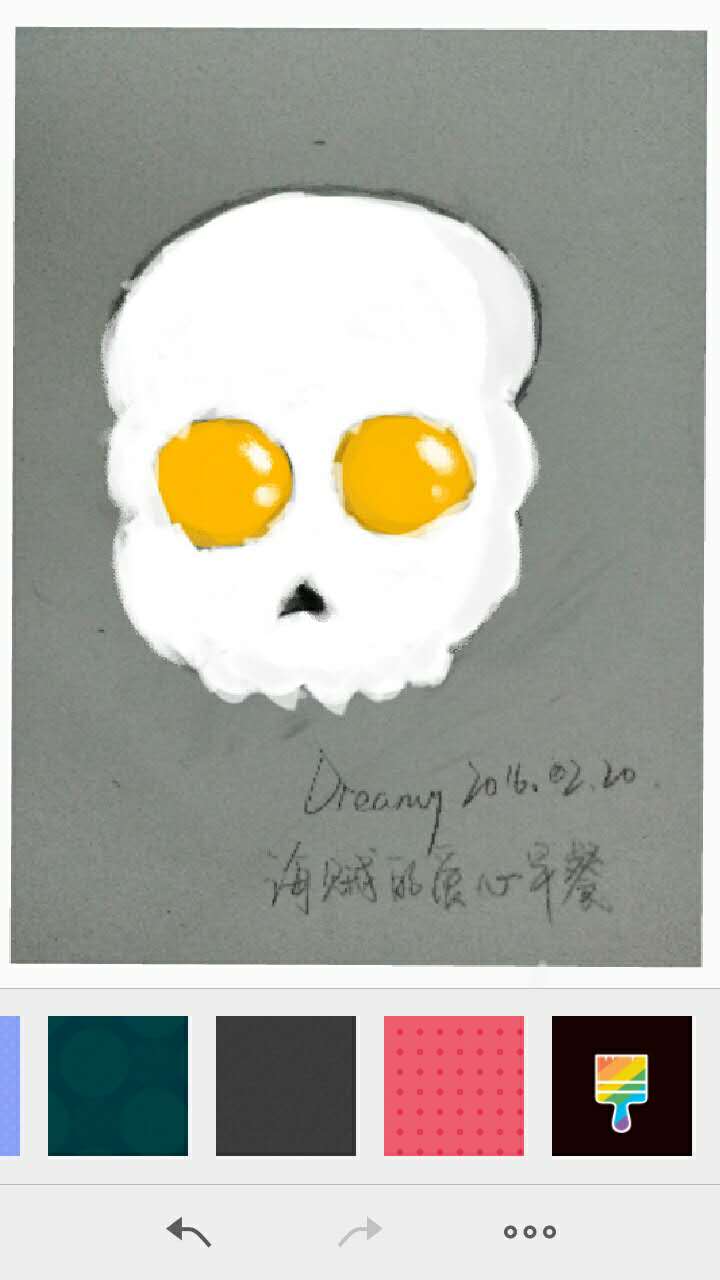 Dreamy 2016.02.20
海贼的良心早餐